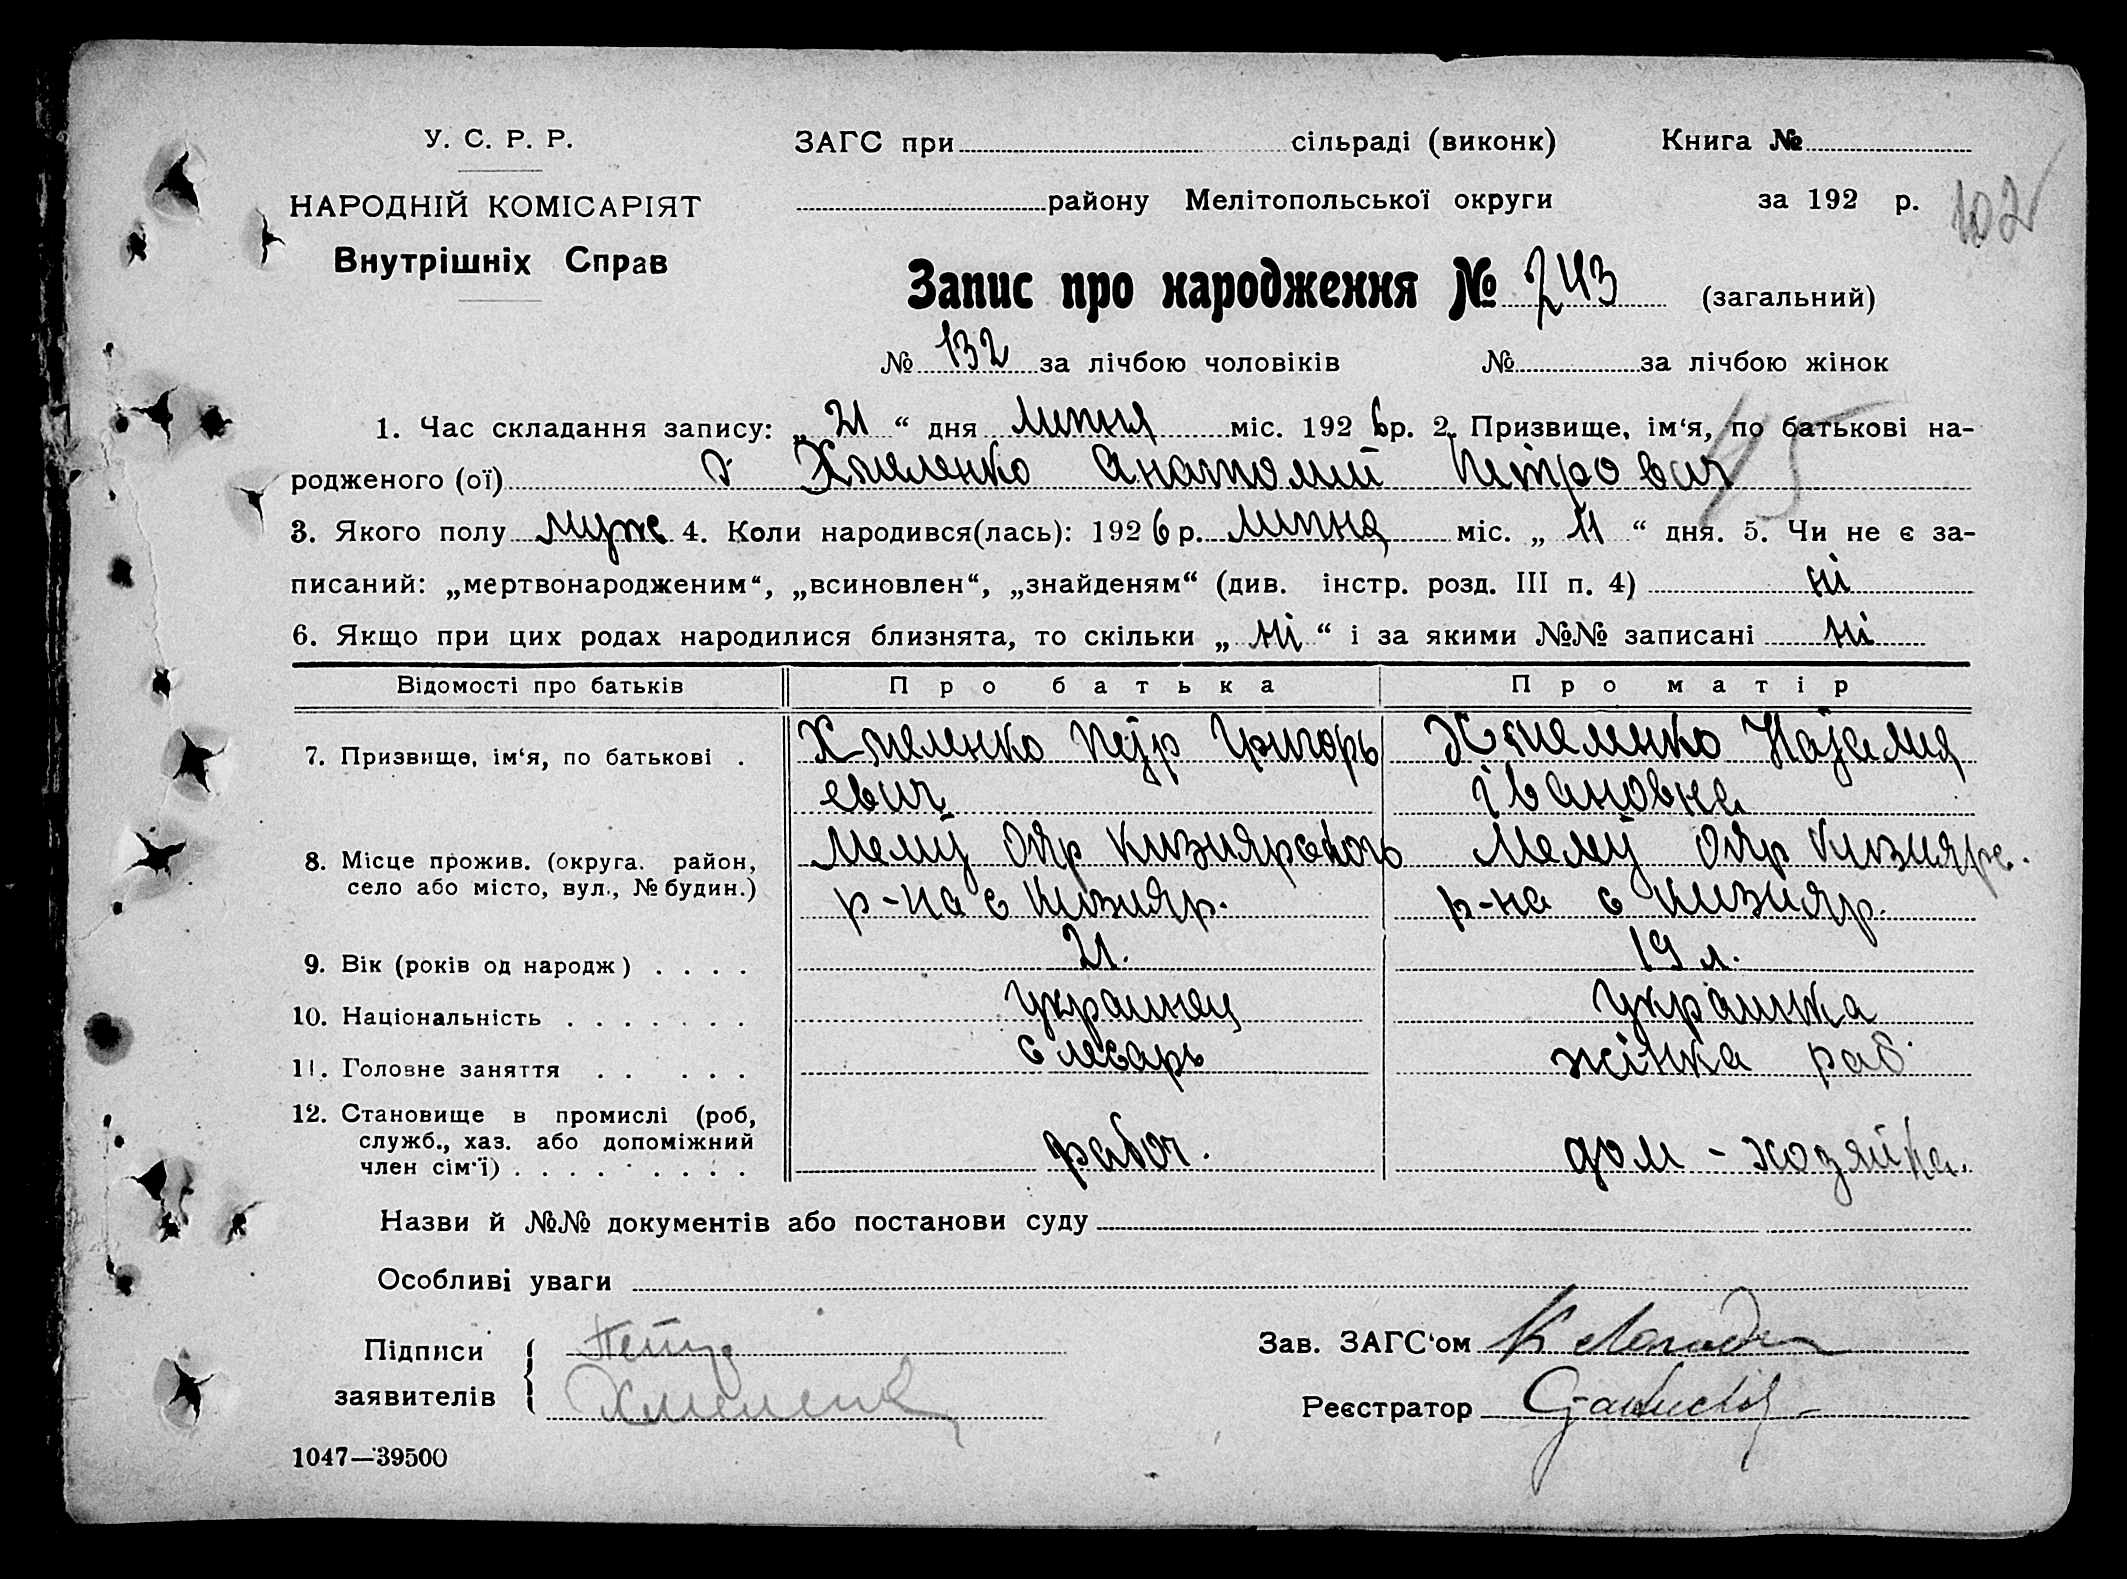 У. С. Р. Р.
НАРОДНІЙ КОМІСАРІЯТ
Внутрішніх Справ
ЗАГС при сільраді (виконк) Книга №
району Мелітопольської округи за 192 р.
102
Запис про народження № 243 (загальний)
№ 132 за лічбою чоловіків № за лічбою жінок
1. Час складання запису: „ 21 “ дня липня міс. 192 6 р. 2. Призвище, ім‘я, по батькові на-
родженого (ої) Хмеленко Анатолий Петрович
45
3. Якого полу муж 4. Коли народився(лась): 192 6 р. липня міс. „ 11 “ дня. 5. Чи не є за-
писаний: „мертвонародженим“, „всиновлен“, „знайденям“ (див. інстр. розд. III п. 4) ні
6. Якщо при цих родах народилися близнята, то скільки „ ні “ і за якими №№ записані ні
Відомості про батьків Про батька Про матір
7. Призвище, ім‘я, по батькові . Хмеленко Петр Григорь Хмеленко Наталия
евич Івановна
8. Місце прожив. (округа. район, Мелит Окр Кизиярского Мелит Окр Кизиярс.
село або місто, вул., № будин.) р-на с Кизияр. р-на с Кизияр.
9. Вік (років од народж) . . . . 21. 19 л.
10. Національність . . . . . . . украинец украинка
11. Головне заняття . . . . . слесарь жінка раб
12. Становище в промислі (роб,
служб., хаз. або допоміжний
член сім‘ї) . . . . . . . . . рабоч. дом - хозяйка.
Назви й №№ документів або постанови суду
Особливі уваги
Підписи Петр
заявителів Хмеленко
Зав. ЗАГС‘ом
Реєстратор
1047—39500